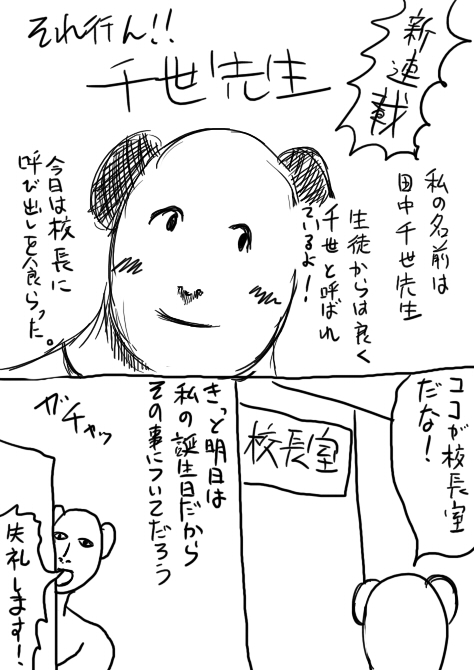 それ行ん!!
千世先生
新連載
私の名前は
田中千世先生
生徒からは良く
千世と呼ばれ
ているよ!
今日は校長に
呼び出しを食らった。
ココが校長室
だな!
校長室
きっと明日は
私の誕生日だから
その事についてだろう
ガチャッ
失礼します!